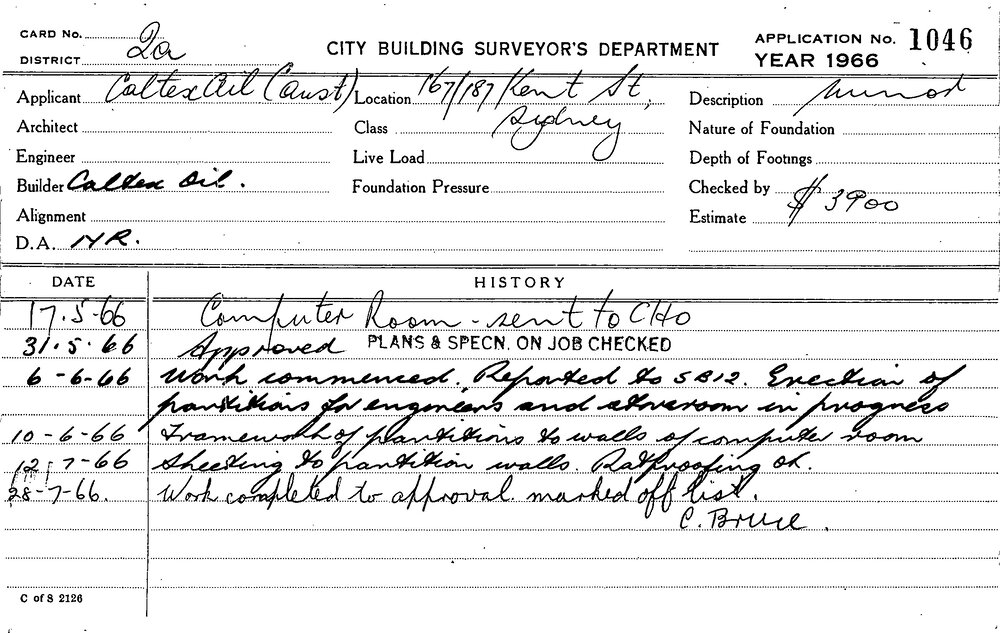 CARD No.
DISTRICT 2a
CITY BUILDING SURVEYOR'S DEPARTMENT
APPLICATION No. 1046
YEAR 1966
Applicant Caltex Oil (Aust) Location 167/187 Kent St, Description minor
Architect Class Sydney Nature of Foundation
Engineer Live Load Depth of Footings
Builder Caltex Oil. Foundation Pressure Checked by
Alignment Estimate $ 3900
D.A. NR.
DATE HISTORY
17.5-66 Computer Room - sent to CHO
31.5.66 Approved PLANS & SPECN. ON JOB CHECKED
6-6-66 Work commenced. Reported to SB12. Erection of
partitions for engineers and storeroom in progress
10-6-66 Framework of partitions to walls of computer room
12-7-66 Sheeting to partition walls. Ratproofing ok.
28-7-66. Work completed to approval. marked off list.
C. Bruce.
C of S 2126